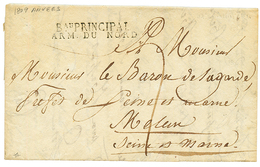 1809 ANVERS
Bau PRINCIPAL
ARM. DU NORD
A Monsieur
Monsieur le Baron de Lagarde,
Prefet de Seine et marne.
Melun
Seine et Marne